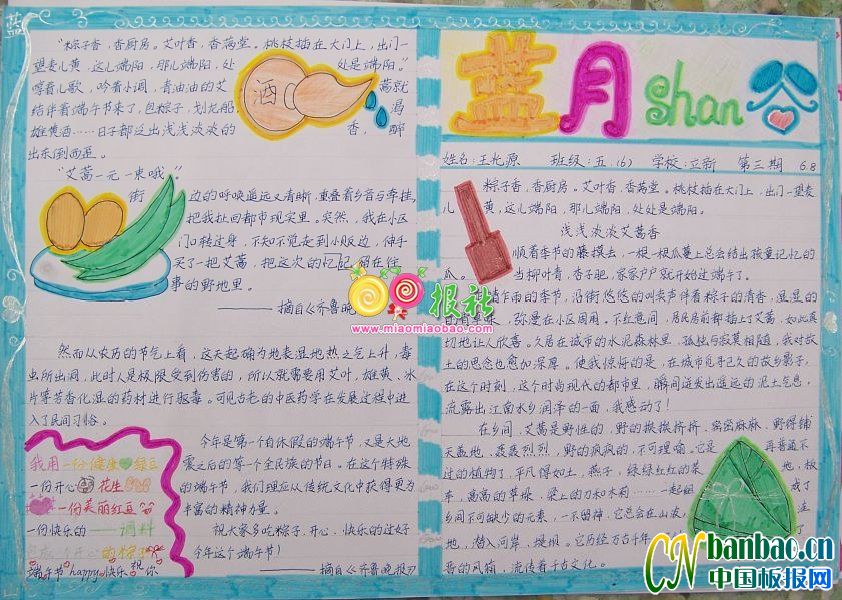 蓝月shan谷
姓名:王允源 班级:五(6) 学校:立新 第三期 6.8
"粽子香,香厨房。艾叶香,香满堂。桃枝插在大门上,出门一
望麦儿黄,这儿端阳,那儿端阳,处处是端阳。"
哼着儿歌,吟着小调,青油油的艾蒿就
结伴着端午节来了,包粽子,划龙船,
雄黄酒……日子都这出浅浅浓浓的香,
出东倒西歪。
酒
"艾蒿一元一束哦。"
街边的呼唤遥远又清晰,重叠着乡音与牵挂,
把我扯回都市现实里。突然,我在小区
门口转过身,不知不觉走到小贩边,伸手
买了一把艾蒿,把这次的忆记留在往
事的野地里。
——摘自《齐鲁晚
然而从农历的节气上看,这天起确为地表湿地热之气上升,毒
虫所出洞,此时人是极限受到伤害的,所以就需要用艾叶,雄黄、冰
片等芳香化湿的药材进行驱毒。可见古老的中医药学在发展过程中进
入了民间习俗。
今年是第一个自休假的端午节,又是大地
震之后的第一个全民族的节日。在这个特殊
的端午节,我们理应从传统文化中获得更为
丰富的精神力量。
祝大家多吃粽子,开心、快乐的过好
今年这个端午节!
——摘自《齐鲁晚报》
我用一份健康绿豆
一份开心花生
一份美丽红豆
一份快乐的——调料
端午节happy快乐祝你
粽子香,香厨房。艾叶香,香满堂。桃枝插在大门上,出门一望麦
儿黄,这儿端阳,那儿端阳,处处是端阳。
浅浅浓浓艾蒿香
顺着季节的藤摸去,一根一根瓜蔓上总会结出孩童记忆的
瓜。当柳叶青,杏子艳,家家户户就开始过端午了。
作雨的季节,沿街悠悠的叫卖声伴着粽子的清香,湿湿的
弥漫在小区周围。不经意间,居民房前都插上了艾蒿,如此真
切地让人欣喜。久居在城市的水泥森林里,孤独与寂寞相随,我对故
土的思念也愈加深厚。使我惊讶的是,在城市觅寻已久的故乡影子,
在这个时刻,这个时尚现代的都市里,瞬间迸发出遥远的泥土气息,
流露出江南水乡润泽的一面,我感动了!
在乡间,艾蒿是野性的,野的挨挨挤挤,密密麻麻,野得铺
天盖地,轰轰烈烈,野的疯疯的,不可理喻。它是再普通不
过的植物了,平凡得如土,燕子,绿绿红红的菜地,板
车,高高的草垛,梁上的刀和木莉……一起组成了
乡间不可缺少的元素,一不留神,它总会在山坡、洼
地,潜入河岸、堤坝。它历经万古千年
香的风韵,流传着千古文化。
报社
www.miaomiaobao.com
CN banbao.cn
中国板报网